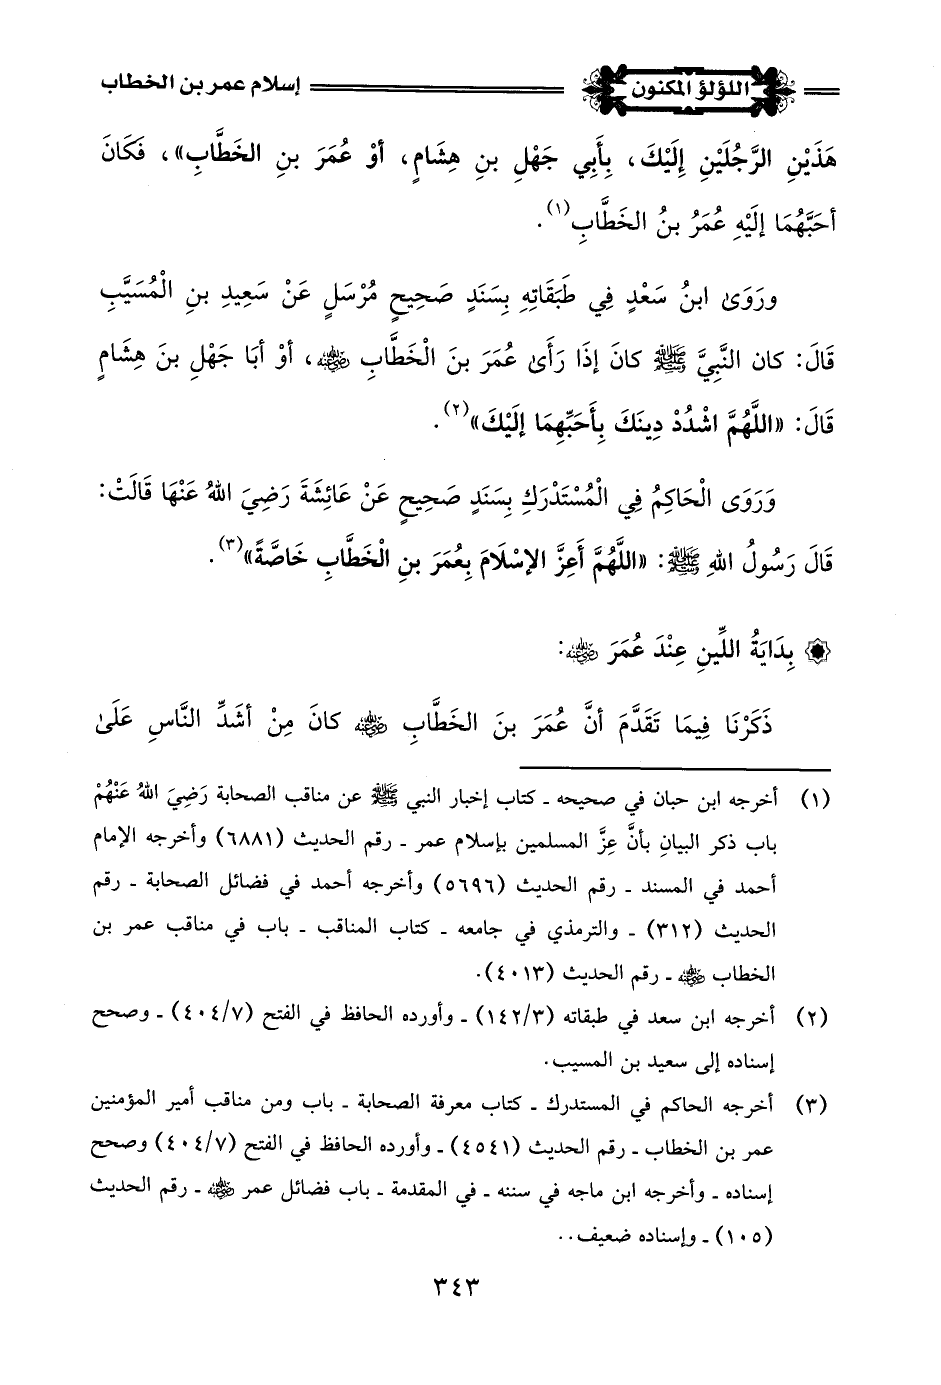 اللؤلؤ المكنون إسلام عمر بن الخطاب
هَذَيْنِ الرَّجُلَيْنِ إِلَيْكَ، بِأَبِي جَهْلِ بنِ هِشَامٍ، أوْ عُمَرَ بنِ الخَطَّابِ»، فَكَانَ
أحَبَّهُمَا إلَيْهِ عُمَرُ بنُ الخَطَّابِ(١).
ورَوَىٰ ابنُ سَعْدٍ فِي طَبَقَاتِهِ بِسَنَدٍ صَحِيحٍ مُرْسَلٍ عَنْ سَعِيدِ بنِ الْمُسَيَّبِ
قَالَ: كان النَّبِيَّ ﷺ كانَ إذَا رَأَىٰ عُمَرَ بنَ الْخَطَّابِ رضي الله عنه، أوْ أبَا جَهْلِ بنَ هِشَامٍ
قَالَ: «اللَّهُمَّ اشْدُدْ دِينَكَ بِأَحَبِّهِمَا إلَيْكَ»(٢).
وَرَوَى الْحَاكِمُ فِي الْمُسْتَدْرَكِ بِسَنَدٍ صَحِيحٍ عَنْ عَائِشَةَ رَضِيَ اللهُ عَنْهَا قَالَتْ:
قَالَ رَسُولُ اللهِ ﷺ: «اللَّهُمَّ أَعِزَّ الإسْلَامَ بِعُمَرَ بنِ الْخَطَّابِ خَاصَّةً»(٣).
بِدَايَةُ اللِّينِ عِنْدَ عُمَرَ رضي الله عنه:
ذَكَرْنَا فِيمَا تَقَدَّمَ أنَّ عُمَرَ بنَ الخَطَّابِ رضي الله عنه كانَ مِنْ أشَدِّ النَّاسِ عَلَىٰ
(١) أخرجه ابن حبان في صحيحه ـ كتاب إخبار النبي ﷺ عن مناقب الصحابة رَضِيَ اللهُ عَنْهُمْ
باب ذكر البيانِ بأنَّ عِزَّ المسلمين بإسلام عمر ـ رقم الحديث (٦٨٨١) وأخرجه الإمام
أحمد في المسند ـ رقم الحديث (٥٦٩٦) وأخرجه أحمد في فضائل الصحابة ـ رقم
الحديث (٣١٢) ـ والترمذي في جامعه ـ كتاب المناقب ـ باب في مناقب عمر بن
الخطاب رضي الله عنه ـ رقم الحديث (٤٠١٣).
(٢) أخرجه ابن سعد في طبقاته (١٤٢/٣) ـ وأورده الحافظ في الفتح (٤٠٤/٧) ـ وصحح
إسناده إلى سعيد بن المسيب.
(٣) أخرجه الحاكم في المستدرك ـ كتاب معرفة الصحابة ـ باب ومن مناقب أمير المؤمنين
عمر بن الخطاب ـ رقم الحديث (٤٥٤١) ـ وأورده الحافظ في الفتح (٤٠٤/٧) وصحح
إسناده ـ وأخرجه ابن ماجه في سننه ـ في المقدمة ـ باب فضائل عمر رضي الله عنه ـ رقم الحديث
(١٠٥) ـ وإسناده ضعيف..
٣٤٣